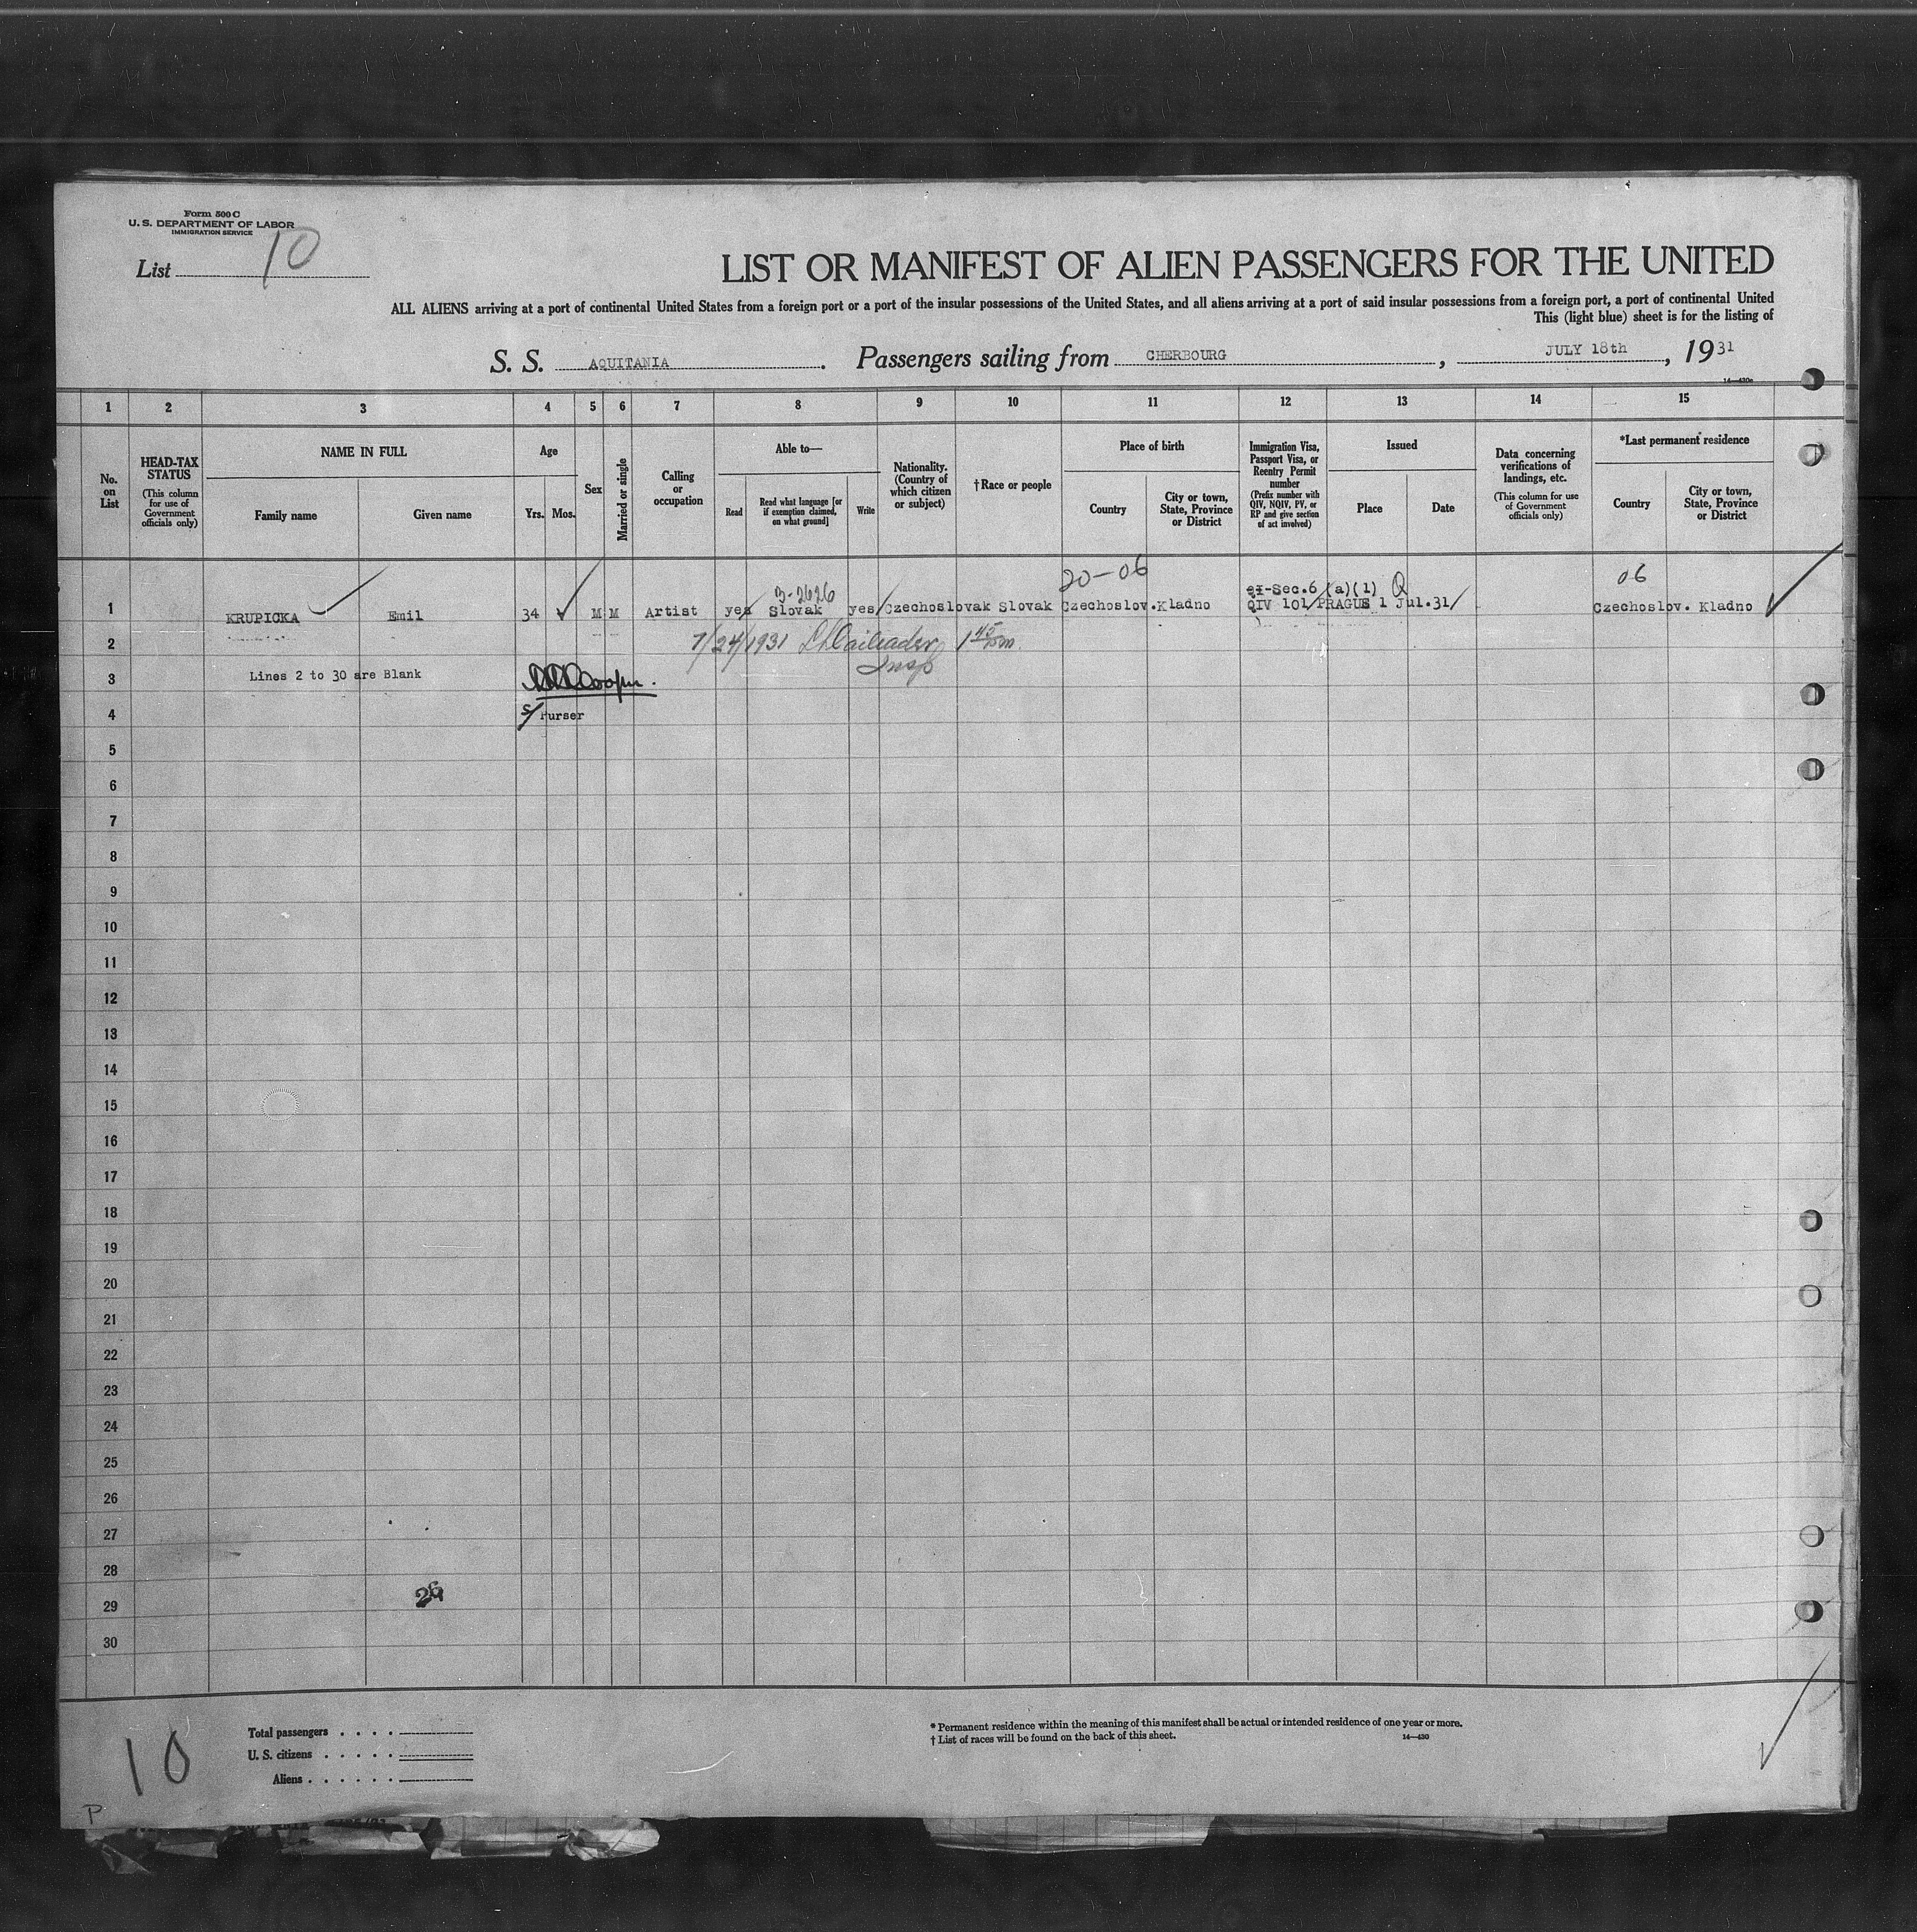 Form 500 C
U. S. DEPARTMENT OF LABOR
IMMIGRATION SERVICE
List 10
LIST OR MANIFEST OF ALIEN PASSENGERS FOR THE UNITED
ALL ALIENS arriving at a port of continental United States from a foreign port or a port of the insular possessions of the United States, and all aliens arriving at a port of said insular possessions from a foreign port, a port of continental United
This (light blue) sheet is for the listing of
S. S. AQUITANIA. Passengers sailing from CHERBOURG, JULY 18th, 1931
14—430a
1 2 3 4 5 6 7 8 9 10 11 12 13 14 15
No. on List
HEAD-TAX STATUS
(This column for use of Government officials only)
NAME IN FULL
Family name
Given name
Age
Yrs. Mos.
Sex
Married or single
Calling or occupation
Able to—
Read
Read what language [or if exemption claimed, on what ground]
Write
Nationality. (Country of which citizen or subject)
†Race or people
Place of birth
Country
City or town, State, Province or District
Immigration Visa, Passport Visa, or Reentry Permit number
(Prefix number with QIV, NQIV, PV, or RP and give section of act involved)
Issued
Place
Date
Data concerning verifications of landings, etc.
(This column for use of Government officials only)
*Last permanent residence
Country
City or town, State, Province or District
3-2626 20-06 Sec.6 (a)(1) Q 06
1 KRUPICKA Emil 34 M M Artist yes Slovak yes Czechoslovak Slovak Czechoslov. Kladno QIV 101 PRAGUE 1 Jul.31 Czechoslov. Kladno
2 7/24/1931 1 45 pm
Insp
3 Lines 2 to 30 are Blank Cooper.
4 s/ Purser
5
6
7
8
9
10
11
12
13
14
15
16
17
18
19
20
21
22
23
24
25
26
27
28
29
30
Total passengers . . . .
U. S. citizens . . . . .
Aliens . . . . . .
10
P
* Permanent residence within the meaning of this manifest shall be actual or intended residence of one year or more.
† List of races will be found on the back of this sheet.
14—430